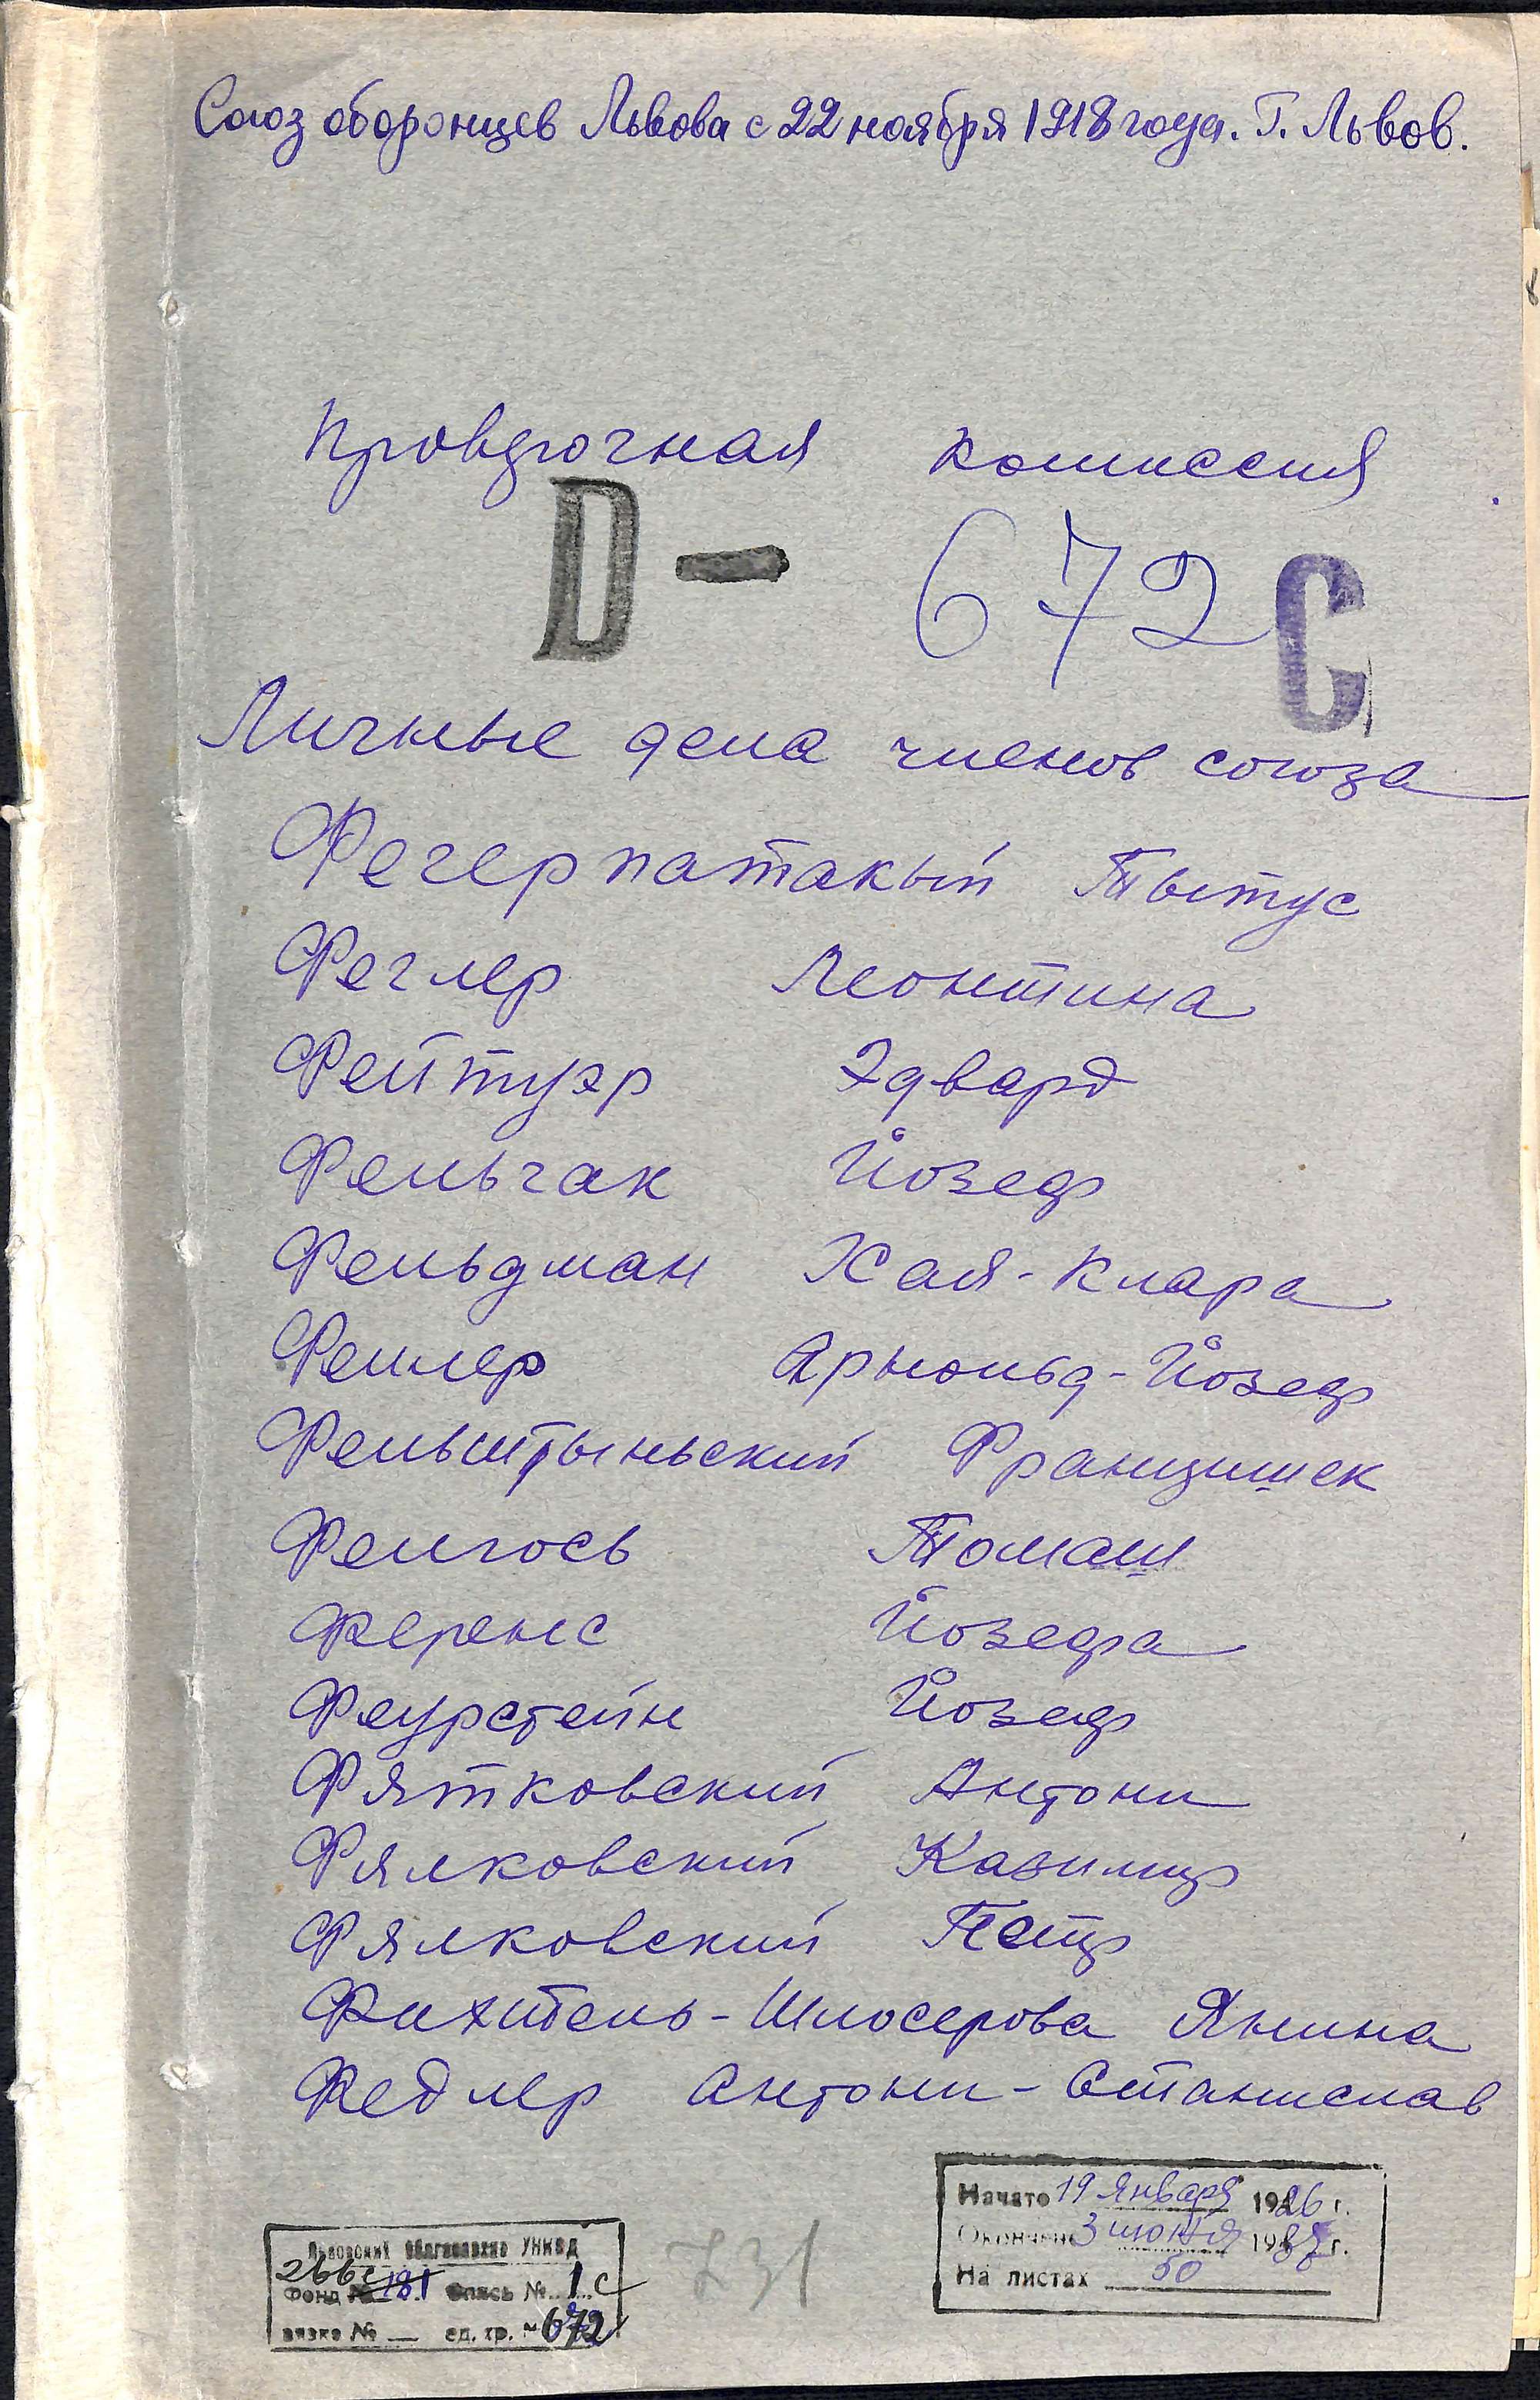 Союз оборонцев Львова с 22 ноября 1918 года. Г. Львов.
Провдрочная комиссия
D — 672 С
Личные дела членов союза
Фегерпатакый Тытус
Феглер Леонтина
Фейтуэр Эдвард
Фельчак Йозеф
Фельдман Хая-Клара
Феллер Арнольд-Йозеф
Фельштыньский Францишек
Фелюсь Томаш
Ференс Йозефа
Феурстейн Йозеф
Фятковский Антони
Фялковский Казимир
Фялковский Петр
Фихтель-Шлосерова Янина
Федлер Антони-Станислав
Начато 19 января 1926 г.
Окончено 3 июня 193 г.
На листах 50
Львовский Облгосархив УНКВД
266с
Фонд № 181 Опись № 1с
вязка № — ед. хр. № 672
731